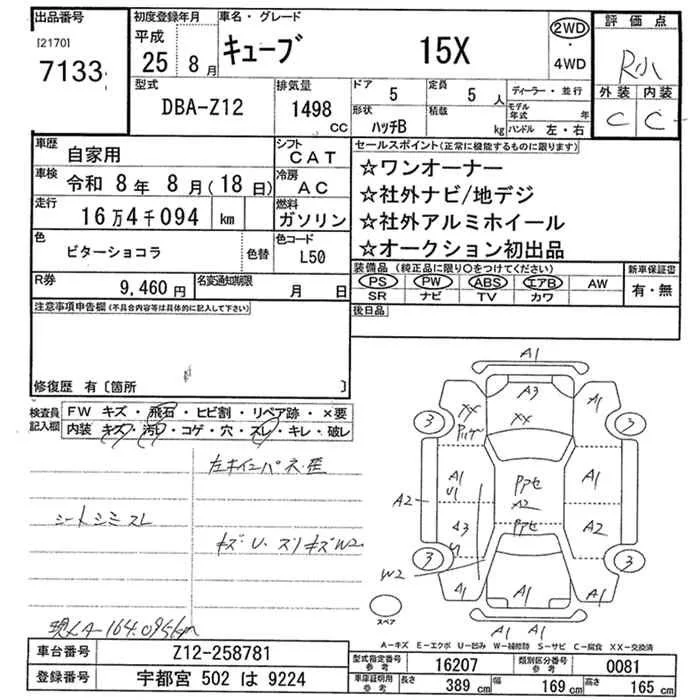 出品番号 初度登録年月 車名・グレード 2WD 評価点
[2170] 平成 キューブ 15X ・
7133 25 8月 4WD R小
型式 排気量 ドア 5 定員 5人 ディーラー・並行 外装 内装
DBA-Z12 1498 CC 形状 ハッチB 積載 kg モデル年式 年 C C-
ハンドル 左・右
車歴 自家用 シフト CAT セールスポイント(正常に機能するものに限ります)
車検 令和 8年 8月(18日) 冷房 AC ☆ワンオーナー
走行 16万4千094 km 燃料 ガソリン ☆社外ナビ/地デジ
色 ビターショコラ 色替 色コード L50 ☆社外アルミホイール
☆オークション初出品
R券 9,460円 名変通知期限 月 日 装備品 (純正品に限り○をつけてください) 新車保証書
PS PW ABS エアB AW 有・無
SR ナビ TV カワ
注意事項申告欄(不具合内容等は具体的に記入して下さい) 後日品
修復歴 有〔箇所 〕
検査員記入欄 FW キズ・飛石・ヒビ割・リペア跡・×要
内装 キズ・汚れ・コゲ・穴・スレ・キレ・破レ
A1
A3
XX XX A1
3 3
A1 U1 A1
A2 A2 A2
A3 U
3 3
W2
A1 A1
A1 A1
シートシミスレ
キズ・U・スリキズW2
現メーター 164,095km
スペア
A-キズ E-エクボ U-凹み W-補修跡 S-サビ C-腐食 XX-交換済
車台番号 Z12-258781
登録番号 宇都宮 502 は 9224
型式指定番号 参考 16207 類別区分番号 参考 0081
車庫証明用 参考 長さ 389 cm 幅 169 cm 高さ 165 cm